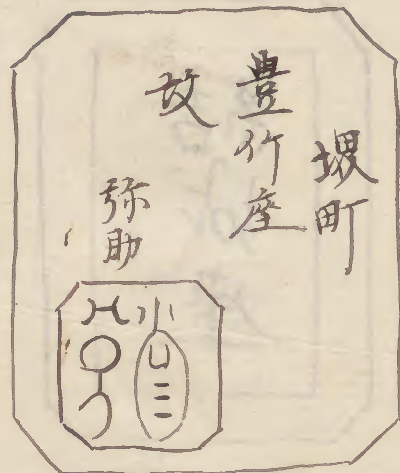 堺町
豊竹座
故
弥助